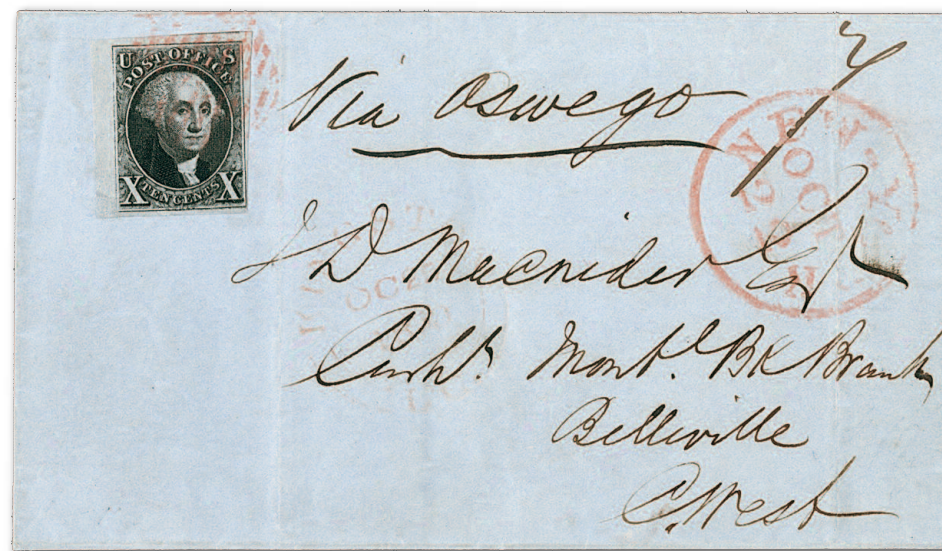 U S
POST OFFICE
X TEN CENTS X
Via Oswego
7
NEW-Y
OCT
J D Macnider Esqr
Cashr. Montl. Bk Branch
Belleville
C. West
OCT